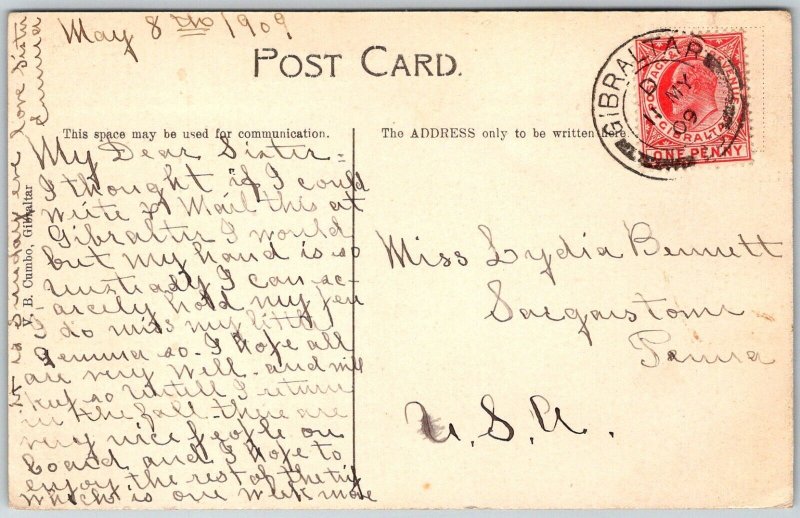 May 8th 1909
POST CARD.
This space may be used for communication.
The ADDRESS only to be written here.
My Dear Sister -
I thought if I could
write & Mail this at
Gibralter I would
but my hand is so
unsteady I can sc-
arcely hold my pen
I do miss my little
Gemma so. I hope all
are very well. and will
keep so untill I return
in the fall. there are
very nice people on
board and I hope to
enjoy the rest of the trip
which is one week more
it is Sunday eve love Sister
Emma
V. B. Cumbo, Gibraltar
Miss Lydia Bennett
Penna
U.S.A.
GIBRALTAR
MY
09
POSTAGE & REVENUE
GIBRALTAR
ONE PENNY